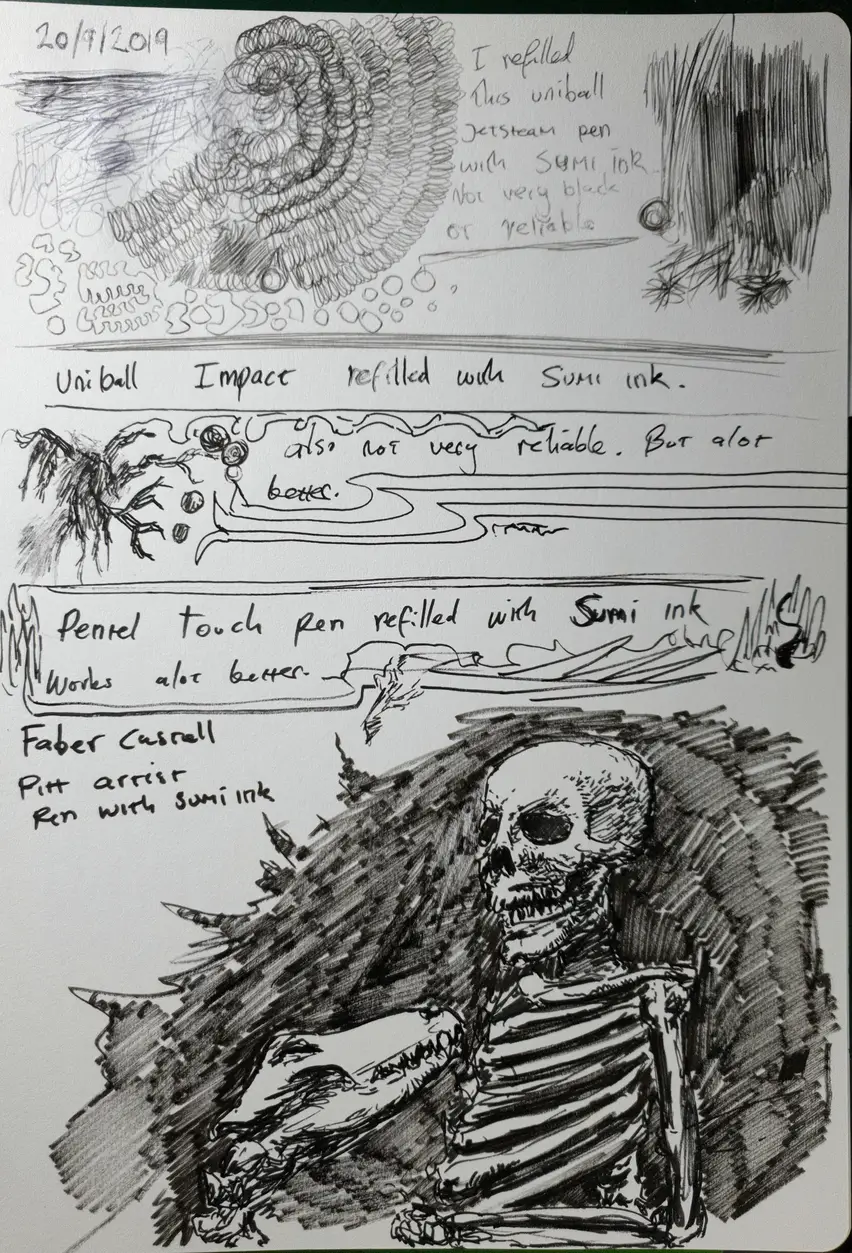 20/9/2019
I refilled
This uniball
Jetsteam pen
with SUMI ink.
Not very black
or reliable
Uniball Impact refilled with SUMI ink.
also not very reliable. But alot
better.
Pentel Touch pen refilled with Sumi ink
Works alot better.
Faber Castell
Pitt artist
Pen with Sumi ink